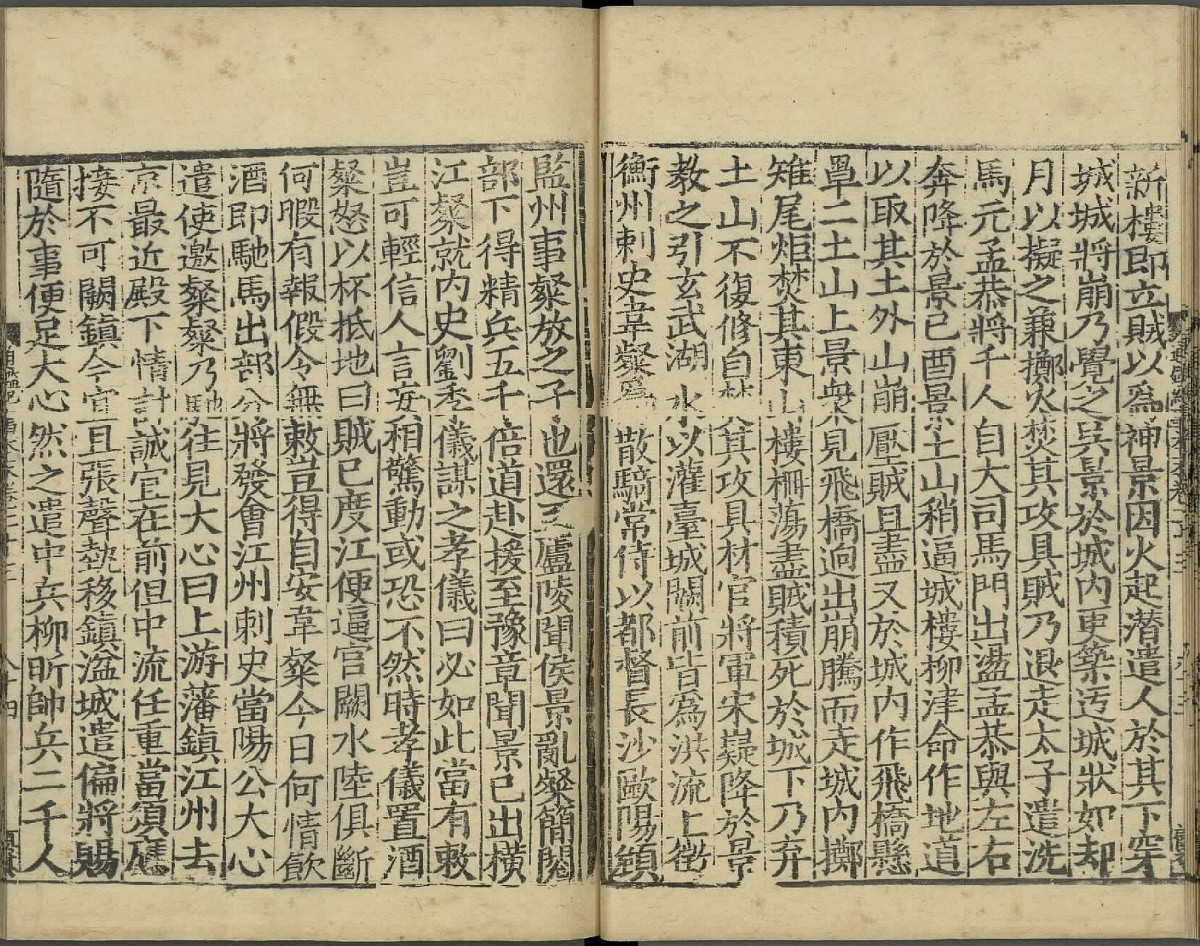 新樓即立賊以爲神景因火起潛遣人於其下穿
城城將崩乃覺之吳景於城内更築迃城狀如却
月以擬之兼擲火焚其攻具賊乃退走太子遣洗
馬元孟恭將千人自大司馬門出盪孟恭與左右
奔降於景已酉景土山稍逼城樓柳津命作地道
以取其土外山崩壓賊且盡又於城内作飛橋懸
罩二土山上景衆見飛橋迥出崩騰而走城内擲
雉尾炬焚其東山樓柵蕩盡賊積死於城下乃弃
土山不復修自焚其攻具材官將軍宋嶷降於景
教之引玄武湖水以灌臺城闕前皆爲洪流上徵
衡州刺史韋粲爲散騎常侍以都督長沙歐陽頠
監州事粲放之子也還至廬陵聞侯景亂粲簡閱
部下得精兵五千倍道赴援至豫章聞景已出橫
江粲就内史劉孝儀謀之孝儀曰必如此當有敕
豈可輕信人言妄相驚動或恐不然時孝儀置酒
粲怒以杯抵地曰賊已度江便逼宫闕水陸俱斷
何暇有報假令無敕豈得自安韋粲今日何情飮
酒即馳馬出部分將發會江州刺史當陽公大心
遣使邀粲粲乃馳往見大心曰上游藩鎮江州去
京最近殿下情計誠宜在前但中流任重當須應
接不可闕鎮今宜且張聲埶移鎮湓城遣偏將賜
隨於事便足大心然之遣中兵柳昕帥兵二千人